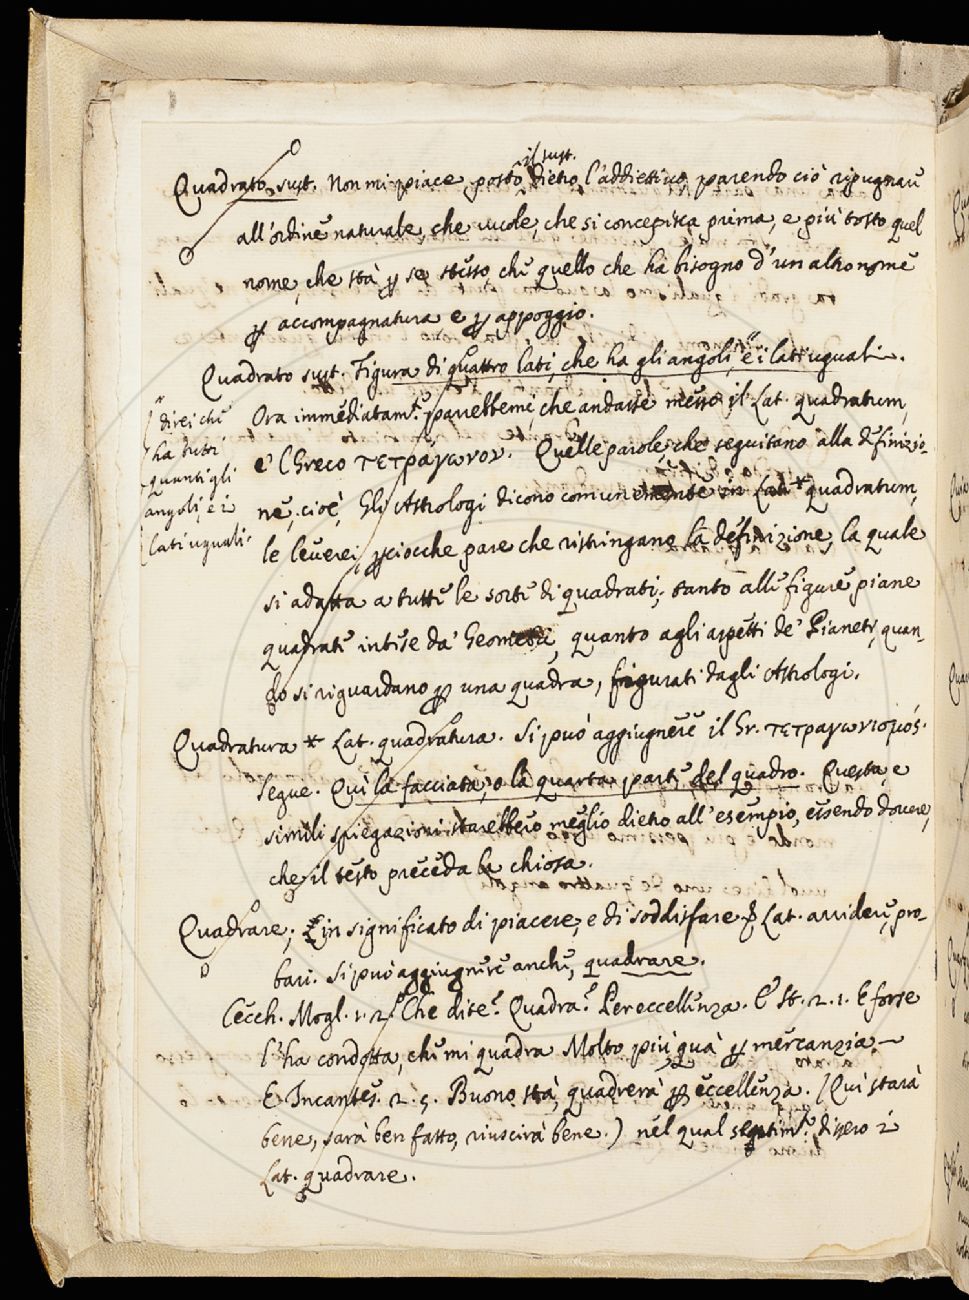 il sust.
Quadrato sust. Non mi piace posto dietro l'addiettivo parendo ciò ripugnare
all'ordine naturale, che vuole, che si concepisca prima, e più tosto quel
nome, che stà ꝑ se stesso, che quello che hà bisogno d'un altro nome
ꝑ accompagnatura e ꝑ appoggio.
Quadrato sust. Figura di quattro lati, che ha gli angoli, e i lati uguali.
Ora immediatam.e parrebbemi che andasse messo il Lat. quadratum,
e 'l Greco τετράγωνον. Quelle parole, che seguitano alla definizio-
ne, cioè, Gli Astrologi dicono comunemente in Lat. * quadratum,
le leverei, ꝑciocche pare che ristringano la definizione, la quale
si adatta a tutte le sorte di quadrati; tanto alle figure piane
quadrate intese da' Geometri, quanto agli aspetti de' Pianeti, quan-
do si riguardano ꝑ una quadra, figurati dagli Astrologi.
direi che
ha tutti
quanti gli
angoli, e i
lati uguali.
Quadratura * Lat. quadratura. Si può aggiugnere il Gr. τετραγωνισμός.
Segue. Qui la facciata, o la quarta parte del quadro. Questa, e
simili spiegazioni starebbero meglio dietro all'esempio, essendo dovere,
che il testo preceda la chiosa.
Quadrare; in significato di piacere, e di soddisfare Lat. arridere, pro-
bari. Si può aggiugnere anche, quadrare.
Cecch. Mogl. 1. 2. Che dite? Quadra? Per eccellenza. E St. 2. 1. E forse
l'ha condotta, che mi quadra Molto più, quà ꝑ mercanzia.
E Incantes. 2. 5. Buono stà, quadrerà ꝑ eccellenza. (Qui starà
bene, sarà ben fatto, riuscirà bene.) nel qual sentim.o dissero i
Lat. quadrare.